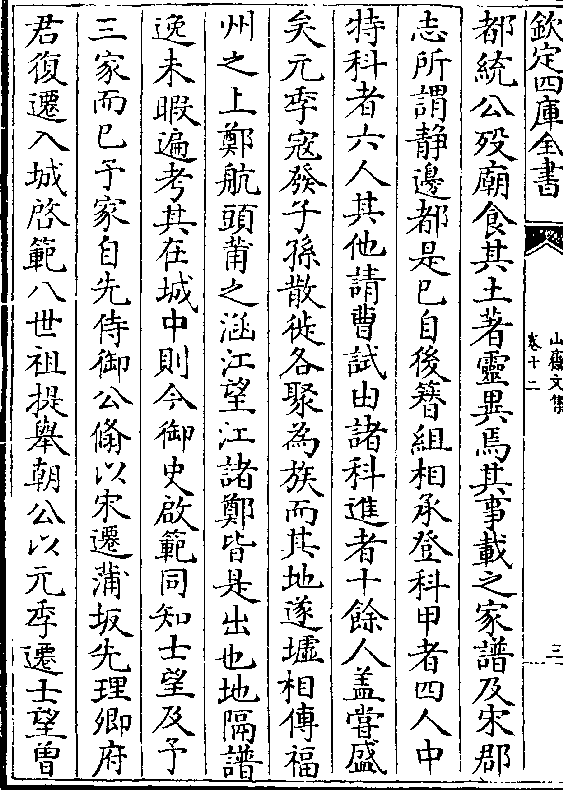 欽定四庫全書
山齋文集
卷十二
三
都統公歿廟食其土著靈異焉其事載之家譜及宋郡
志所謂静邊都是已自後簪組相承登科甲者四人中
特科者六人其他請曹試由諸科進者十餘人盖嘗盛
矣元季寇發子孫散徙各聚為族而其地遂墟相傳福
州之上鄭航頭莆之涵江望江諸鄭皆是出也地隔譜
逸未暇遍考其在城中則今御史啟範同知士望及予
三家而已予家自先侍御公脩以宋遷蒲坂先理卿府
君復遷入城啓範八世祖提舉朝公以元季遷士望曾